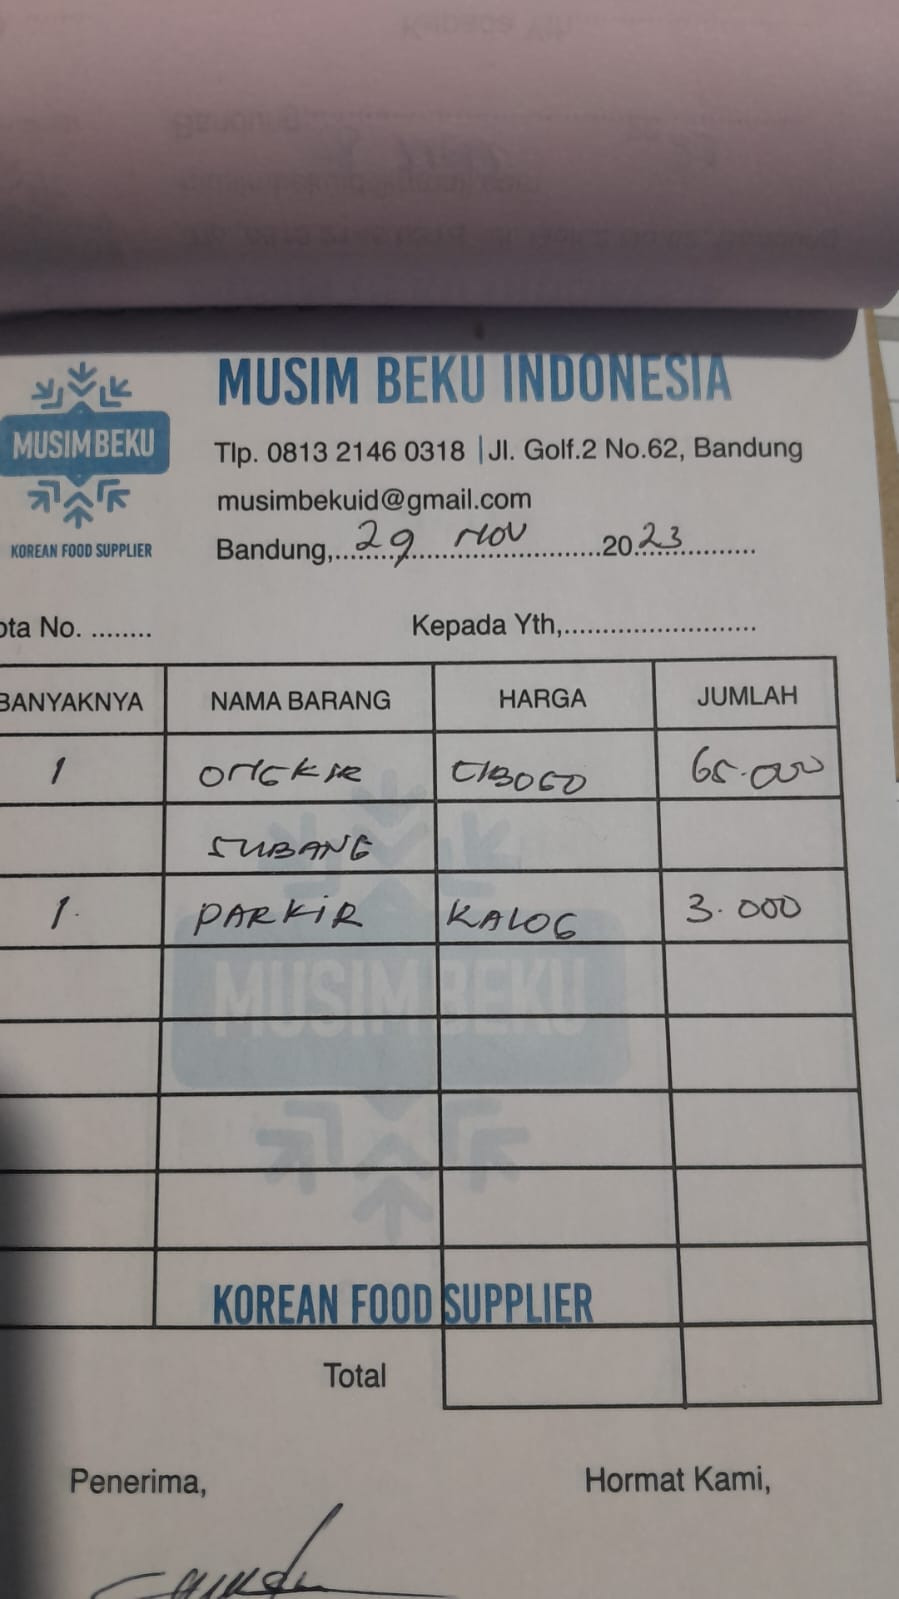 MUSIM BEKU INDONESIA
MUSIM BEKU
KOREAN FOOD SUPPLIER
Tlp. 0813 2146 0318 | Jl. Golf.2 No.62, Bandung
musimbekuid@gmail.com
Bandung,.... 29 NOV ....2023....
ota No. ........ Kepada Yth,........................
BANYAKNYA NAMA BARANG HARGA JUMLAH
1 ONGKIR CIBOGO 65.000
SUBANG
1. PARKIR KALOG 3.000
MUSIM BEKU
KOREAN FOOD SUPPLIER
Total
Penerima, Hormat Kami,